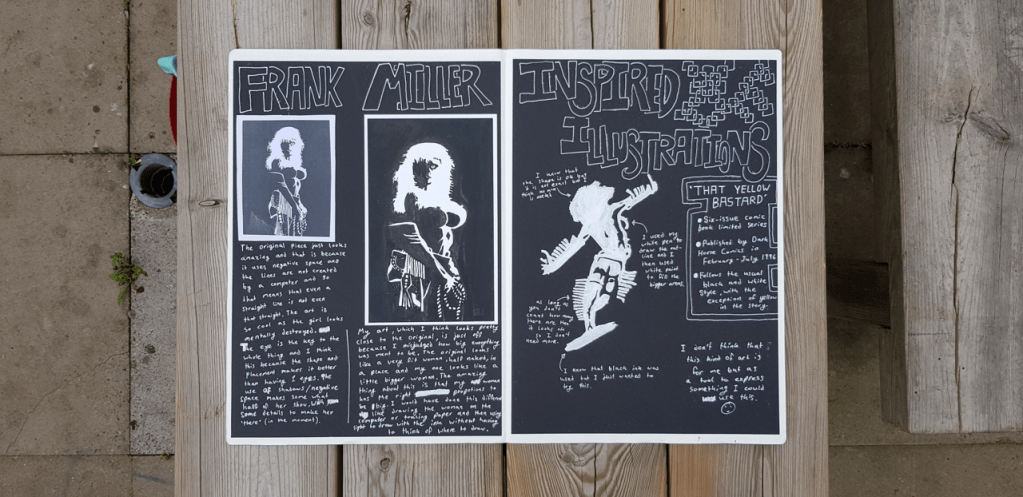 FRANK MILLER
The original piece just looks
amazing and that is because
it uses negative space and
the lines are not created
by a computer and so
that means that even a
straight line is not even
that straight. The art is
so cool as the girl looks
mentally destroyed.
The eye is the key to the
whole thing and I think
this because the shape and
Placement makes it better
than having 2 eyes. The
use of shadows/negative
space makes some what
half of her show, with
some details to make her
'there' (in the moment).
My art, which I think looks pretty
close to the original, is just off
because I misjudged how big everything
was ment to be. The original looks
like a very fit woman, half naked, in
a place and my one looks like a
little bigger woman. The amazing
thing about this is that my woman
has the right propotions to
be big. I would have done this different
by line drawing the woman on the
computer or tracing paper and then using
light to draw with the ink without having
to think of where to draw.
INSPIRED
ILLUSTRATIONS
I know that
the shape is
it is not
I used my
white pen to
draw the out-
line and I
then used
white paint
to fill the
bigger areas.
as long as
you don't
count how many
there are then
it looks ok
so I don't
need more.
I know that black ink was
used but I just wanted to
try this.
'THAT YELLOW
BASTARD'
Six-issue comic
book limited series
Published by Dark
Horse Comics in
February - July 1996
Follows the usual
black and white
style, with the
exception of yellow
in the story.
I don't think that
this kind of art is
for me but as
a tool to express
something I could
use this.